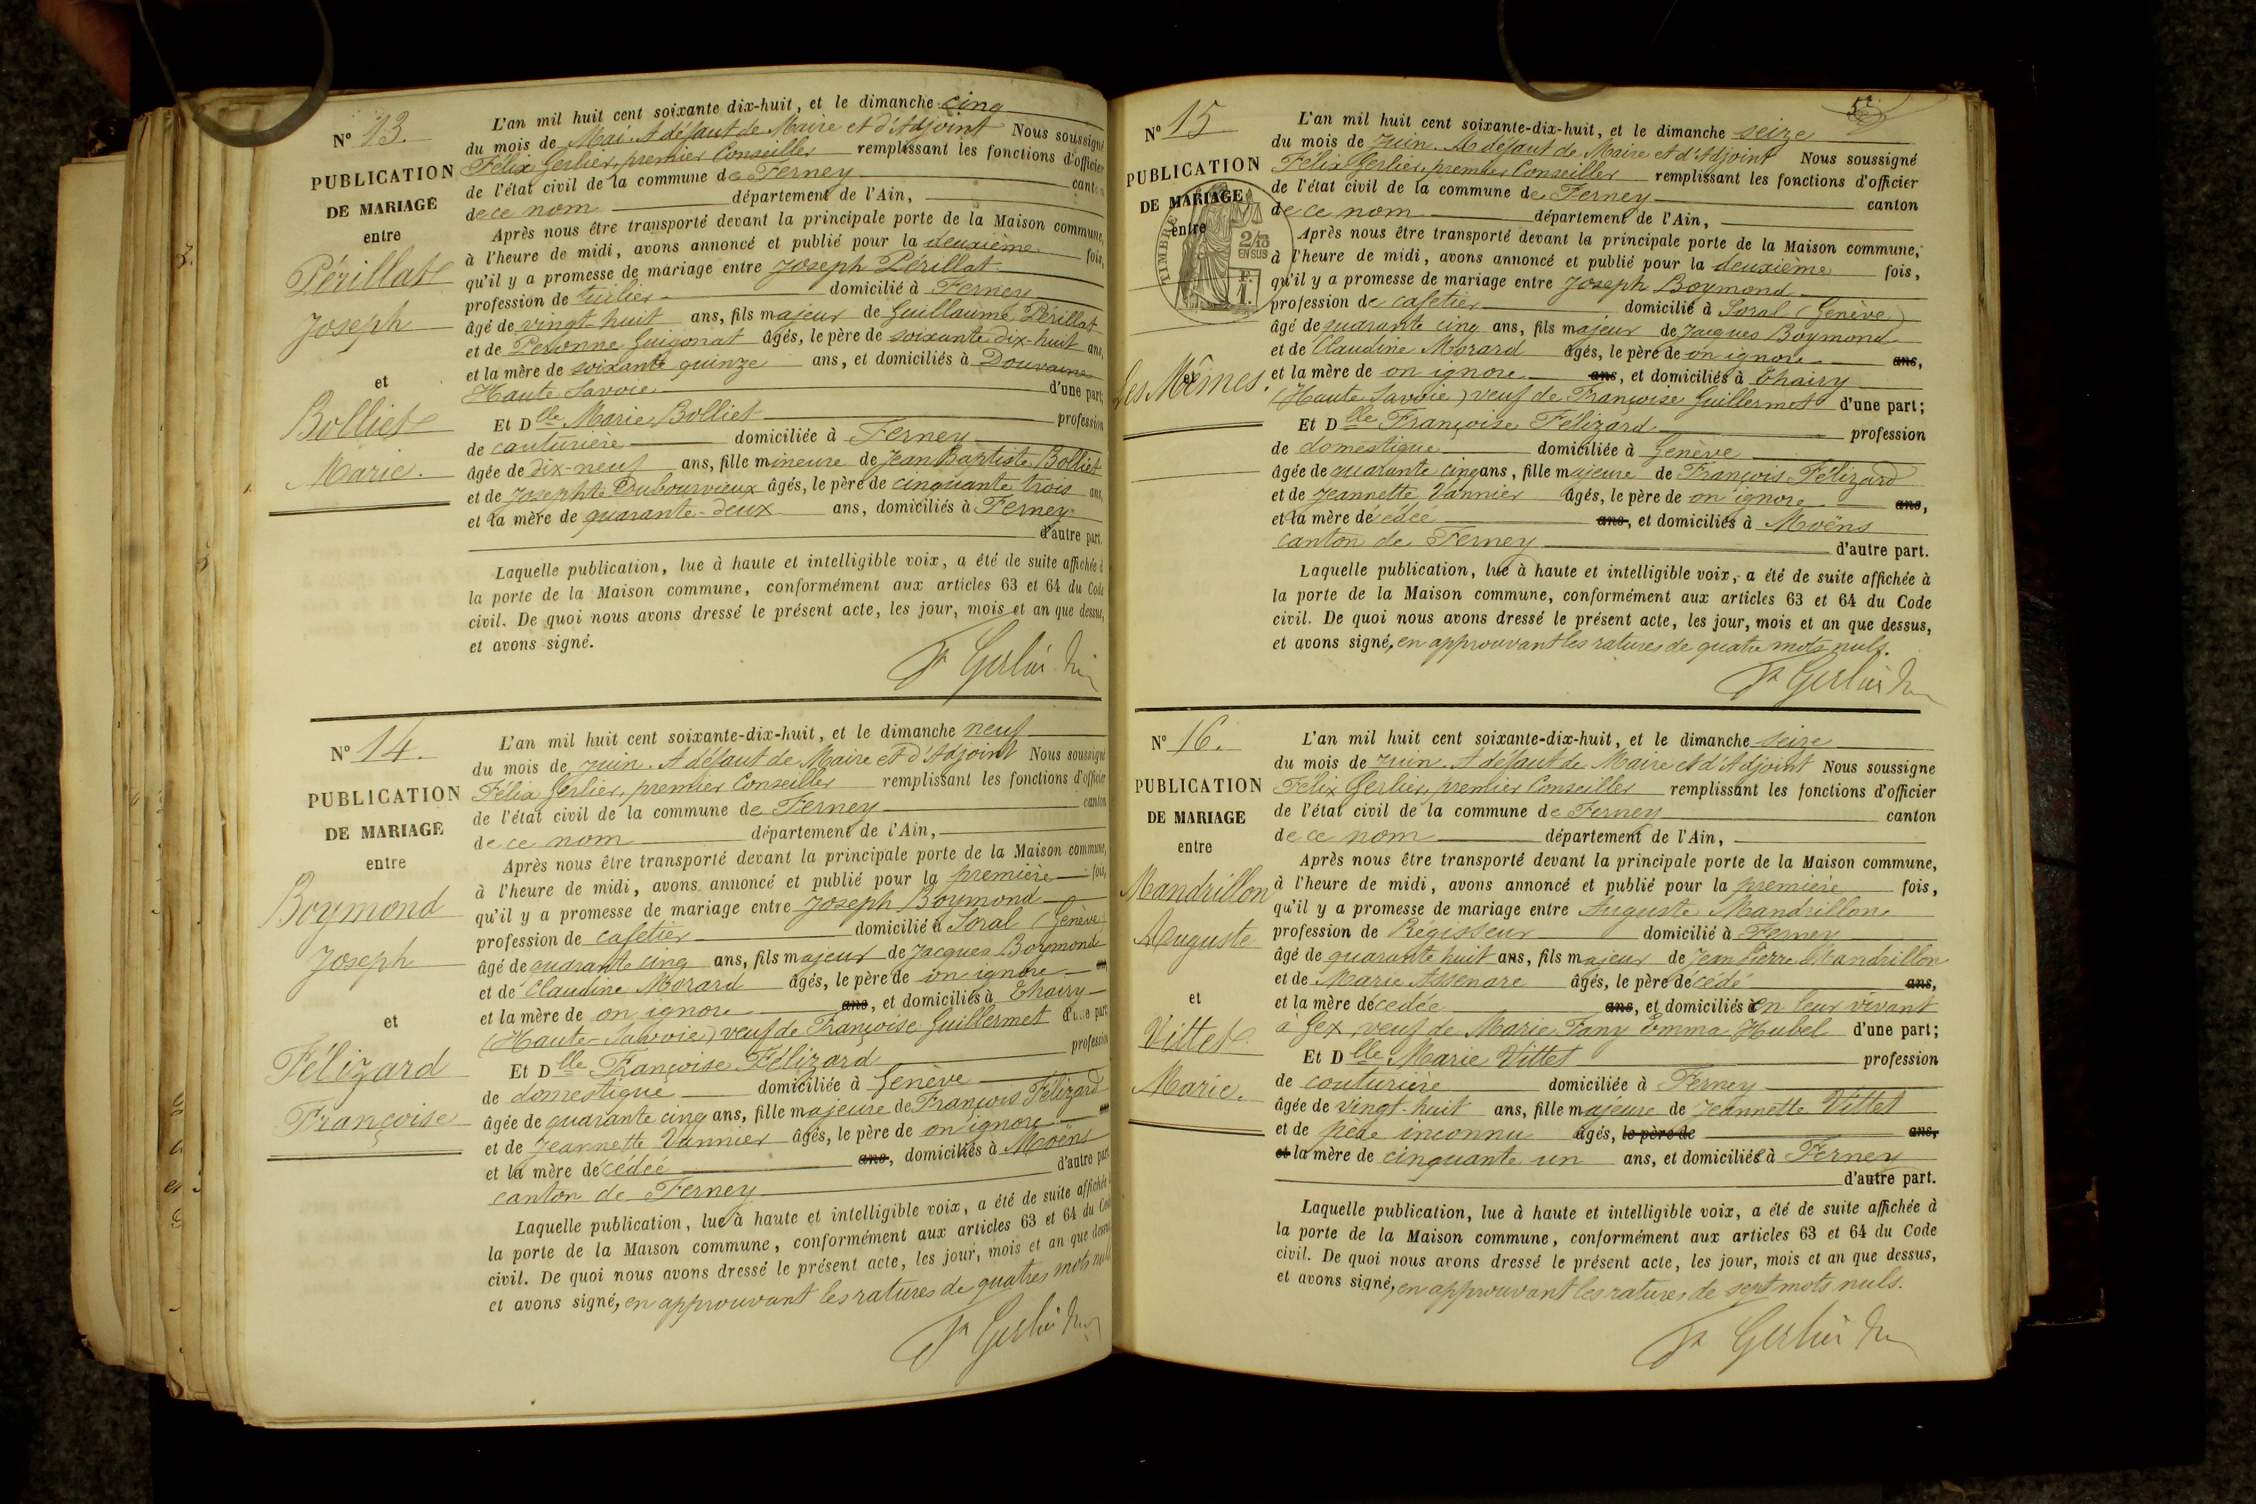 N° 13.
PUBLICATION
DE MARIAGE
entre
Périllat
Joseph
et
Bolliet
Marie.
L'an mil huit cent soixante dix-huit, et le dimanche cinq
du mois de Mai. A défaut de Maire et d'Adjoint Nous soussigné
Félix Gerlier, premier Conseiller remplissant les fonctions d'officier
de l'état civil de la commune de Ferney canton
de ce nom département de l'Ain,
Après nous être transporté devant la principale porte de la Maison commune,
à l'heure de midi, avons annoncé et publié pour la deuxième fois,
qu'il y a promesse de mariage entre Joseph Périllat
profession de tuilier domicilié à Ferney
âgé de vingt-huit ans, fils majeur de Guillaume Périllat
et de Peronne Guigonat âgés, le père de soixante dix-huit ans,
et la mère de soixante quinze ans, et domiciliés à Douvaine
Haute Savoie d'une part;
Et Dlle Marie Bolliet profession
de couturière domiciliée à Ferney
âgée de dix-neuf ans, fille mineure de Jean Baptiste Bolliet
et de Josephte Dubourvieux âgés, le père de cinquante trois ans,
et la mère de quarante-deux ans, domiciliés à Ferney
d'autre part.
Laquelle publication, lue à haute et intelligible voix, a été de suite affichée à
la porte de la Maison commune, conformément aux articles 63 et 64 du Code
civil. De quoi nous avons dressé le présent acte, les jour, mois et an que dessus,
et avons signé.
Fx Gerlier
N° 14.
PUBLICATION
DE MARIAGE
entre
Boymond
Joseph
et
Félizard
Françoise
L'an mil huit cent soixante-dix-huit, et le dimanche neuf
du mois de Juin. A défaut de Maire et d'Adjoint Nous soussigné
Félix Gerlier, premier Conseiller remplissant les fonctions d'officier
de l'état civil de la commune de Ferney canton
de ce nom département de l'Ain,
Après nous être transporté devant la principale porte de la Maison commune,
à l'heure de midi, avons annoncé et publié pour la première fois,
qu'il y a promesse de mariage entre Joseph Boymond
profession de cafetier domicilié à Soral (Genève)
âgé de quarante cinq ans, fils majeur de Jacques Boymond
et de Claudine Morard âgés, le père de on ignore ans
et la mère de on ignore ans, et domiciliés à Thairy
(Haute-Savoie) veuf de Françoise Guillermet d'une part
Et Dlle Françoise Félizard profession
de domestique domiciliée à Genève
âgée de quarante cinq ans, fille majeure de François Félizard
et de Jeannette Vannier âgés, le père de on ignore ans
et la mère décédée ans, domiciliés à Moëns
canton de Ferney d'autre part
Laquelle publication, lue à haute et intelligible voix, a été de suite affichée à
la porte de la Maison commune, conformément aux articles 63 et 64 du Code
civil. De quoi nous avons dressé le présent acte, les jour, mois et an que dessus
et avons signé, en approuvant les ratures de quatres mots nuls
Fx Gerlier
N° 15
PUBLICATION
DE MARIAGE
entre
et
Les Mêmes.
TIMBRE
2/10
EN SUS
F.
1.
L'an mil huit cent soixante-dix-huit, et le dimanche seize
du mois de Juin. A défaut de Maire et d'Adjoint Nous soussigné
Félix Gerlier, premier Conseiller remplissant les fonctions d'officier
de l'état civil de la commune de Ferney canton
de ce nom département de l'Ain,
Après nous être transporté devant la principale porte de la Maison commune,
à l'heure de midi, avons annoncé et publié pour la deuxième fois,
qu'il y a promesse de mariage entre Joseph Boymond
profession de cafetier domicilié à Soral (Genève)
âgé de quarante cinq ans, fils majeur de Jacques Boymond
et de Claudine Morard âgés, le père de on ignore ans,
et la mère de on ignore ans, et domiciliés à Thairy
(Haute Savoie) veuf de Françoise Guillermet d'une part;
Et Dlle Françoise Félizard profession
de domestique domiciliée à Genève
âgée de quarante cinq ans, fille majeure de François Félizard
et de Jeannette Vannier âgés, le père de on ignore ans,
et la mère décédée ans, et domiciliés à Moëns
canton de Ferney d'autre part.
Laquelle publication, lue à haute et intelligible voix, a été de suite affichée à
la porte de la Maison commune, conformément aux articles 63 et 64 du Code
civil. De quoi nous avons dressé le présent acte, les jour, mois et an que dessus,
et avons signé, en approuvant les ratures de quatre mots nuls.
Fx Gerlier
N° 16.
PUBLICATION
DE MARIAGE
entre
Mandrillon
Auguste
et
Vittet
Marie.
L'an mil huit cent soixante-dix-huit, et le dimanche seize
du mois de Juin. A défaut de Maire et d'Adjoint Nous soussigné
Félix Gerlier, premier Conseiller remplissant les fonctions d'officier
de l'état civil de la commune de Ferney canton
de ce nom département de l'Ain,
Après nous être transporté devant la principale porte de la Maison commune,
à l'heure de midi, avons annoncé et publié pour la première fois,
qu'il y a promesse de mariage entre Auguste Mandrillon
profession de Régisseur domicilié à Ferney
âgé de quarante huit ans, fils majeur de Jean Pierre Mandrillon
et de Marie Assenare âgés, le père décédé ans,
et la mère décedée ans, et domiciliés en leur vivant
à Gex, veuf de Marie Fany Emma Hubel d'une part;
Et Dlle Marie Vittet profession
de couturière domiciliée à Ferney
âgée de vingt-huit ans, fille majeure de Jeannette Vittet
et de père inconnu âgés, le père de ans,
et la mère de cinquante un ans, et domiciliée à Ferney
d'autre part.
Laquelle publication, lue à haute et intelligible voix, a été de suite affichée à
la porte de la Maison commune, conformément aux articles 63 et 64 du Code
civil. De quoi nous avons dressé le présent acte, les jour, mois et an que dessus,
et avons signé, en approuvant les ratures de sept mots nuls.
Fx Gerlier